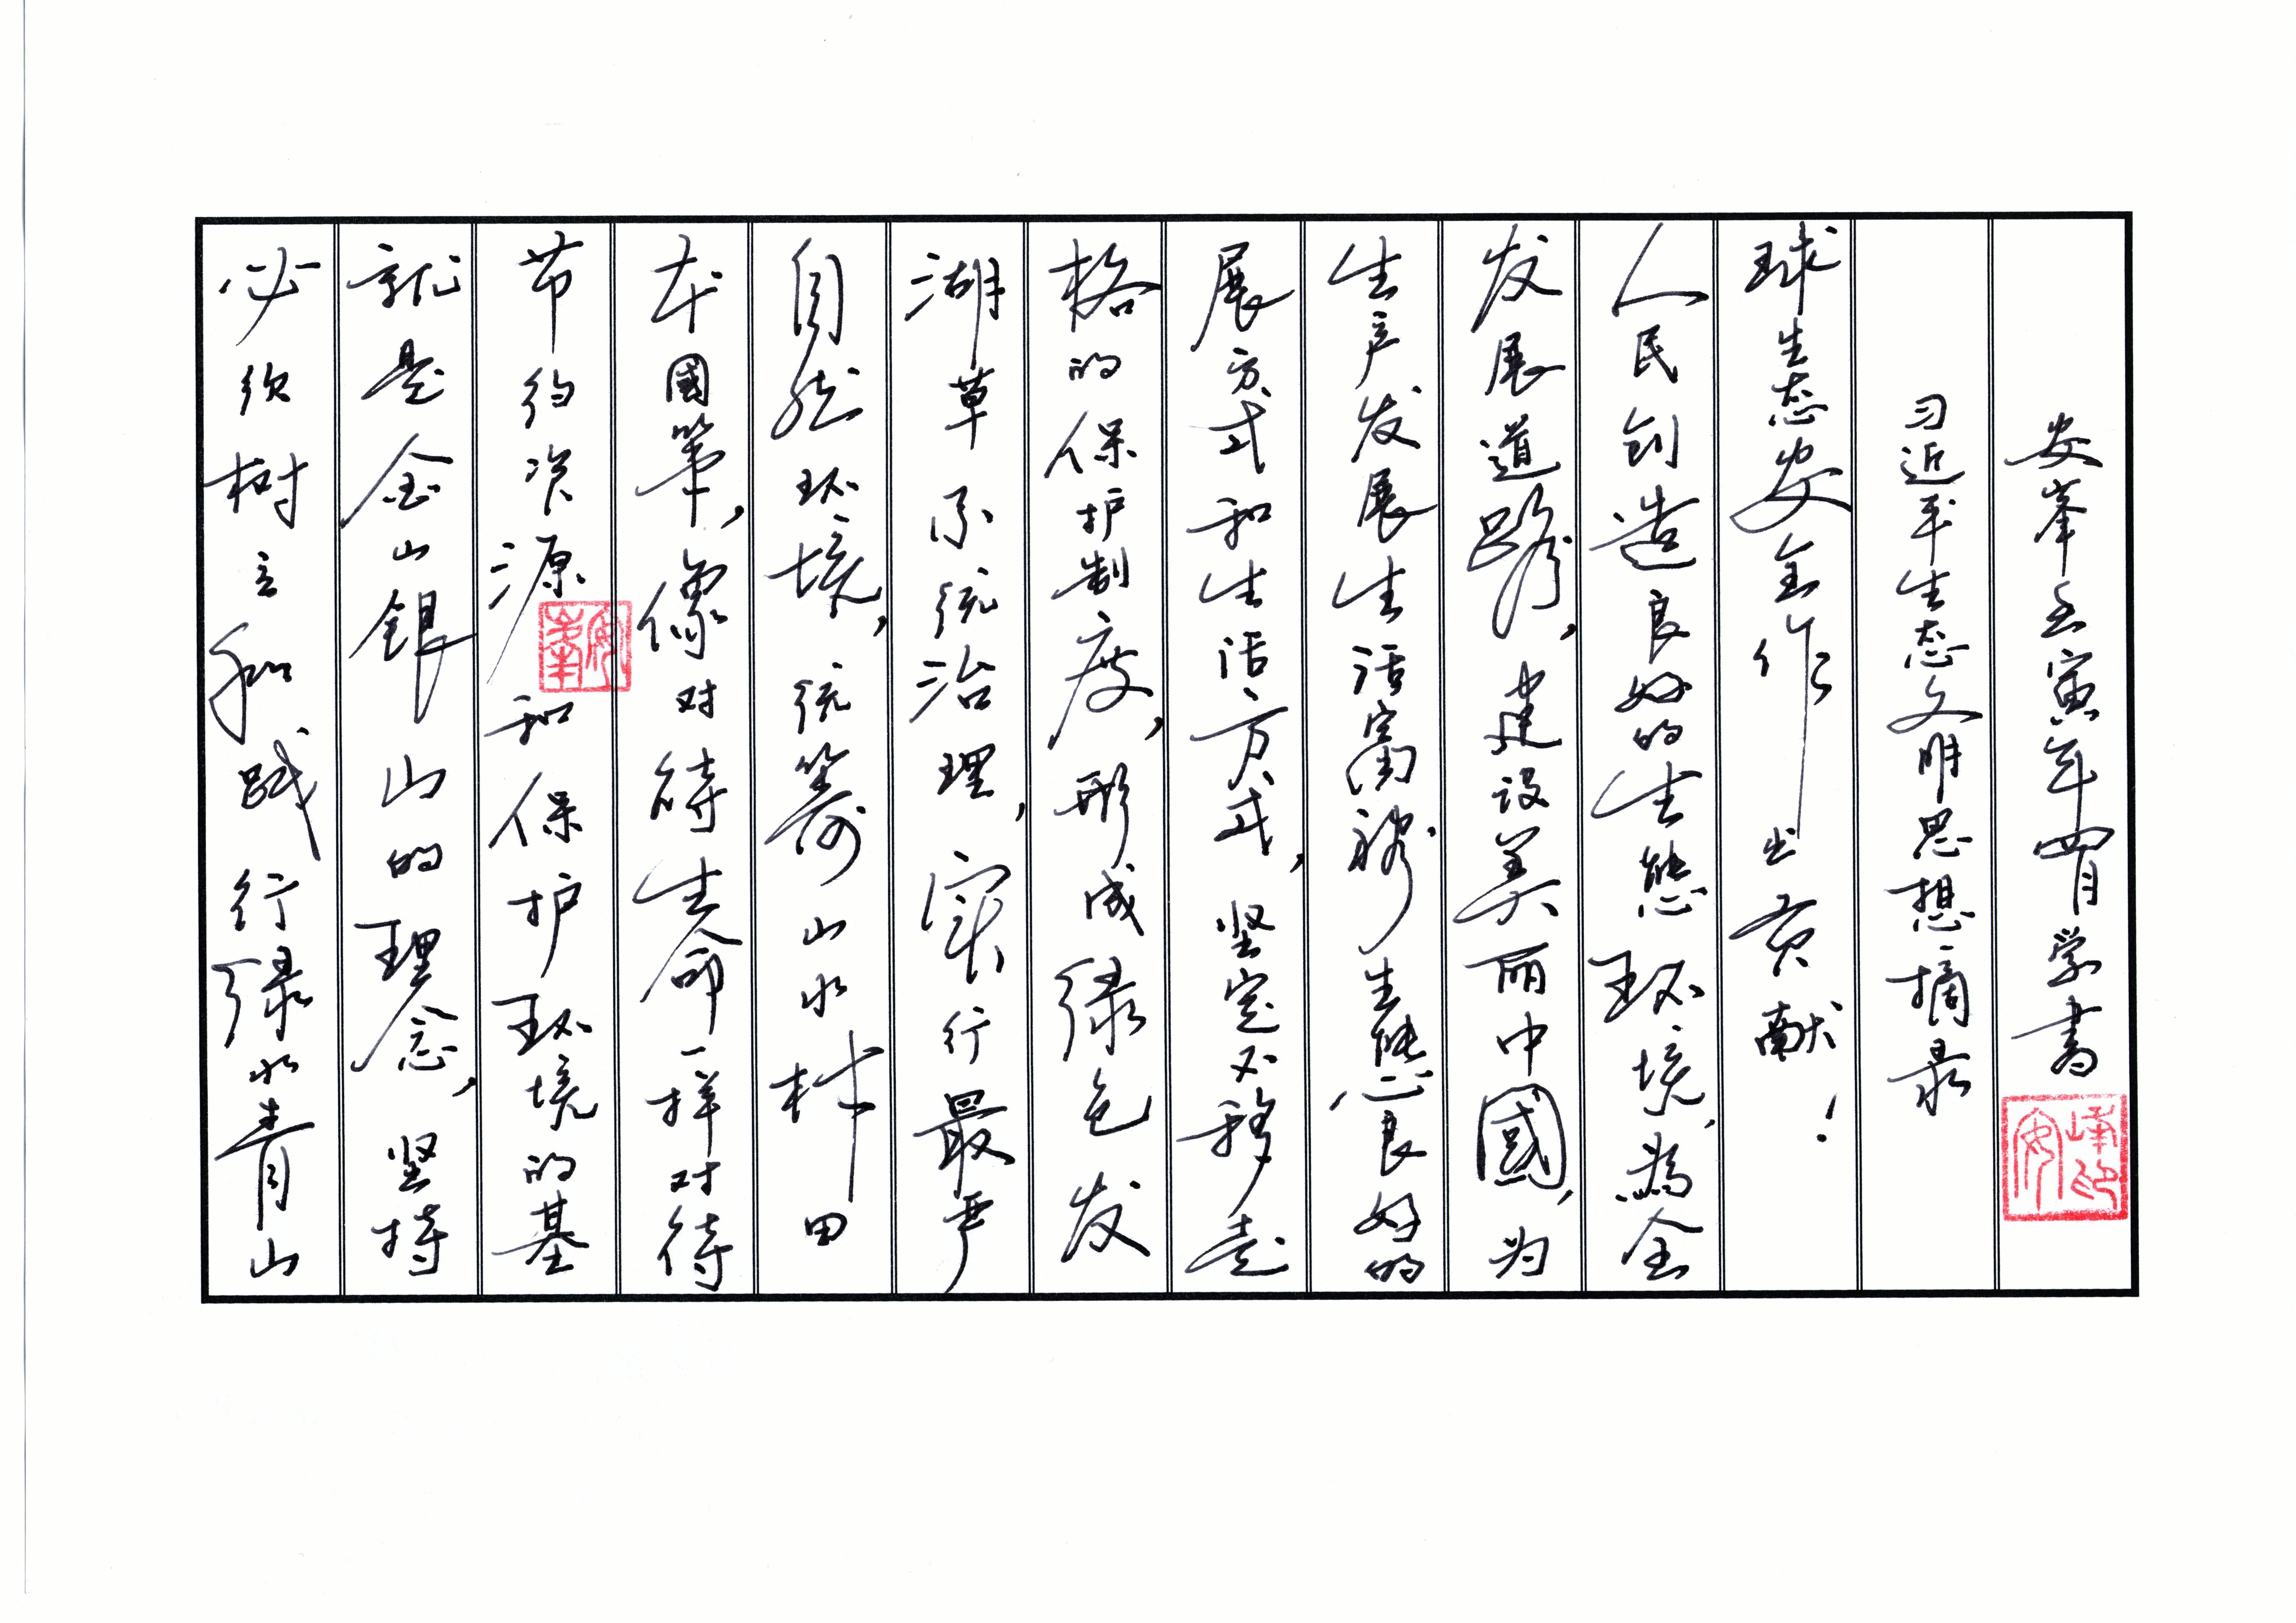 必须树立和践行绿水青山
就是金山银山的理念,坚持
节约资源和保护环境的基
本國策,像对待生命一样对待
自然环境,统筹山水林田
湖草系统治理,实行最严
格的保护制度,形成绿色发
展方式和生活方式,坚定不移走
生产发展生活富裕生態良好的
发展道路,建设美丽中國,为
人民创造良好的生態环境,為全
球生态安全作出贡献!
习近平生态文明思想摘录
安峯壬寅年四月学書
安峯
安峰印